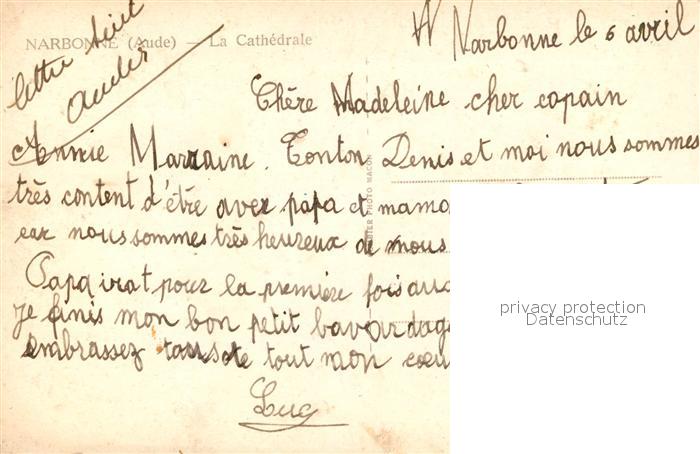 lettre suit
NARBONNE (Aude) — La Cathédrale
Narbonne le 6 avril
Chère Madeleine cher copain
Annie Marraine. Tonton Denis et moi nous sommes
très content d'être avec papa et mama
car nous sommes très heureux de nous
Papa irat pour la première fois au
je finis mon bon petit bavardage
embrassez tous de tout mon cœu
Luc
PHOTO MACON
privacy protection
Datenschutz